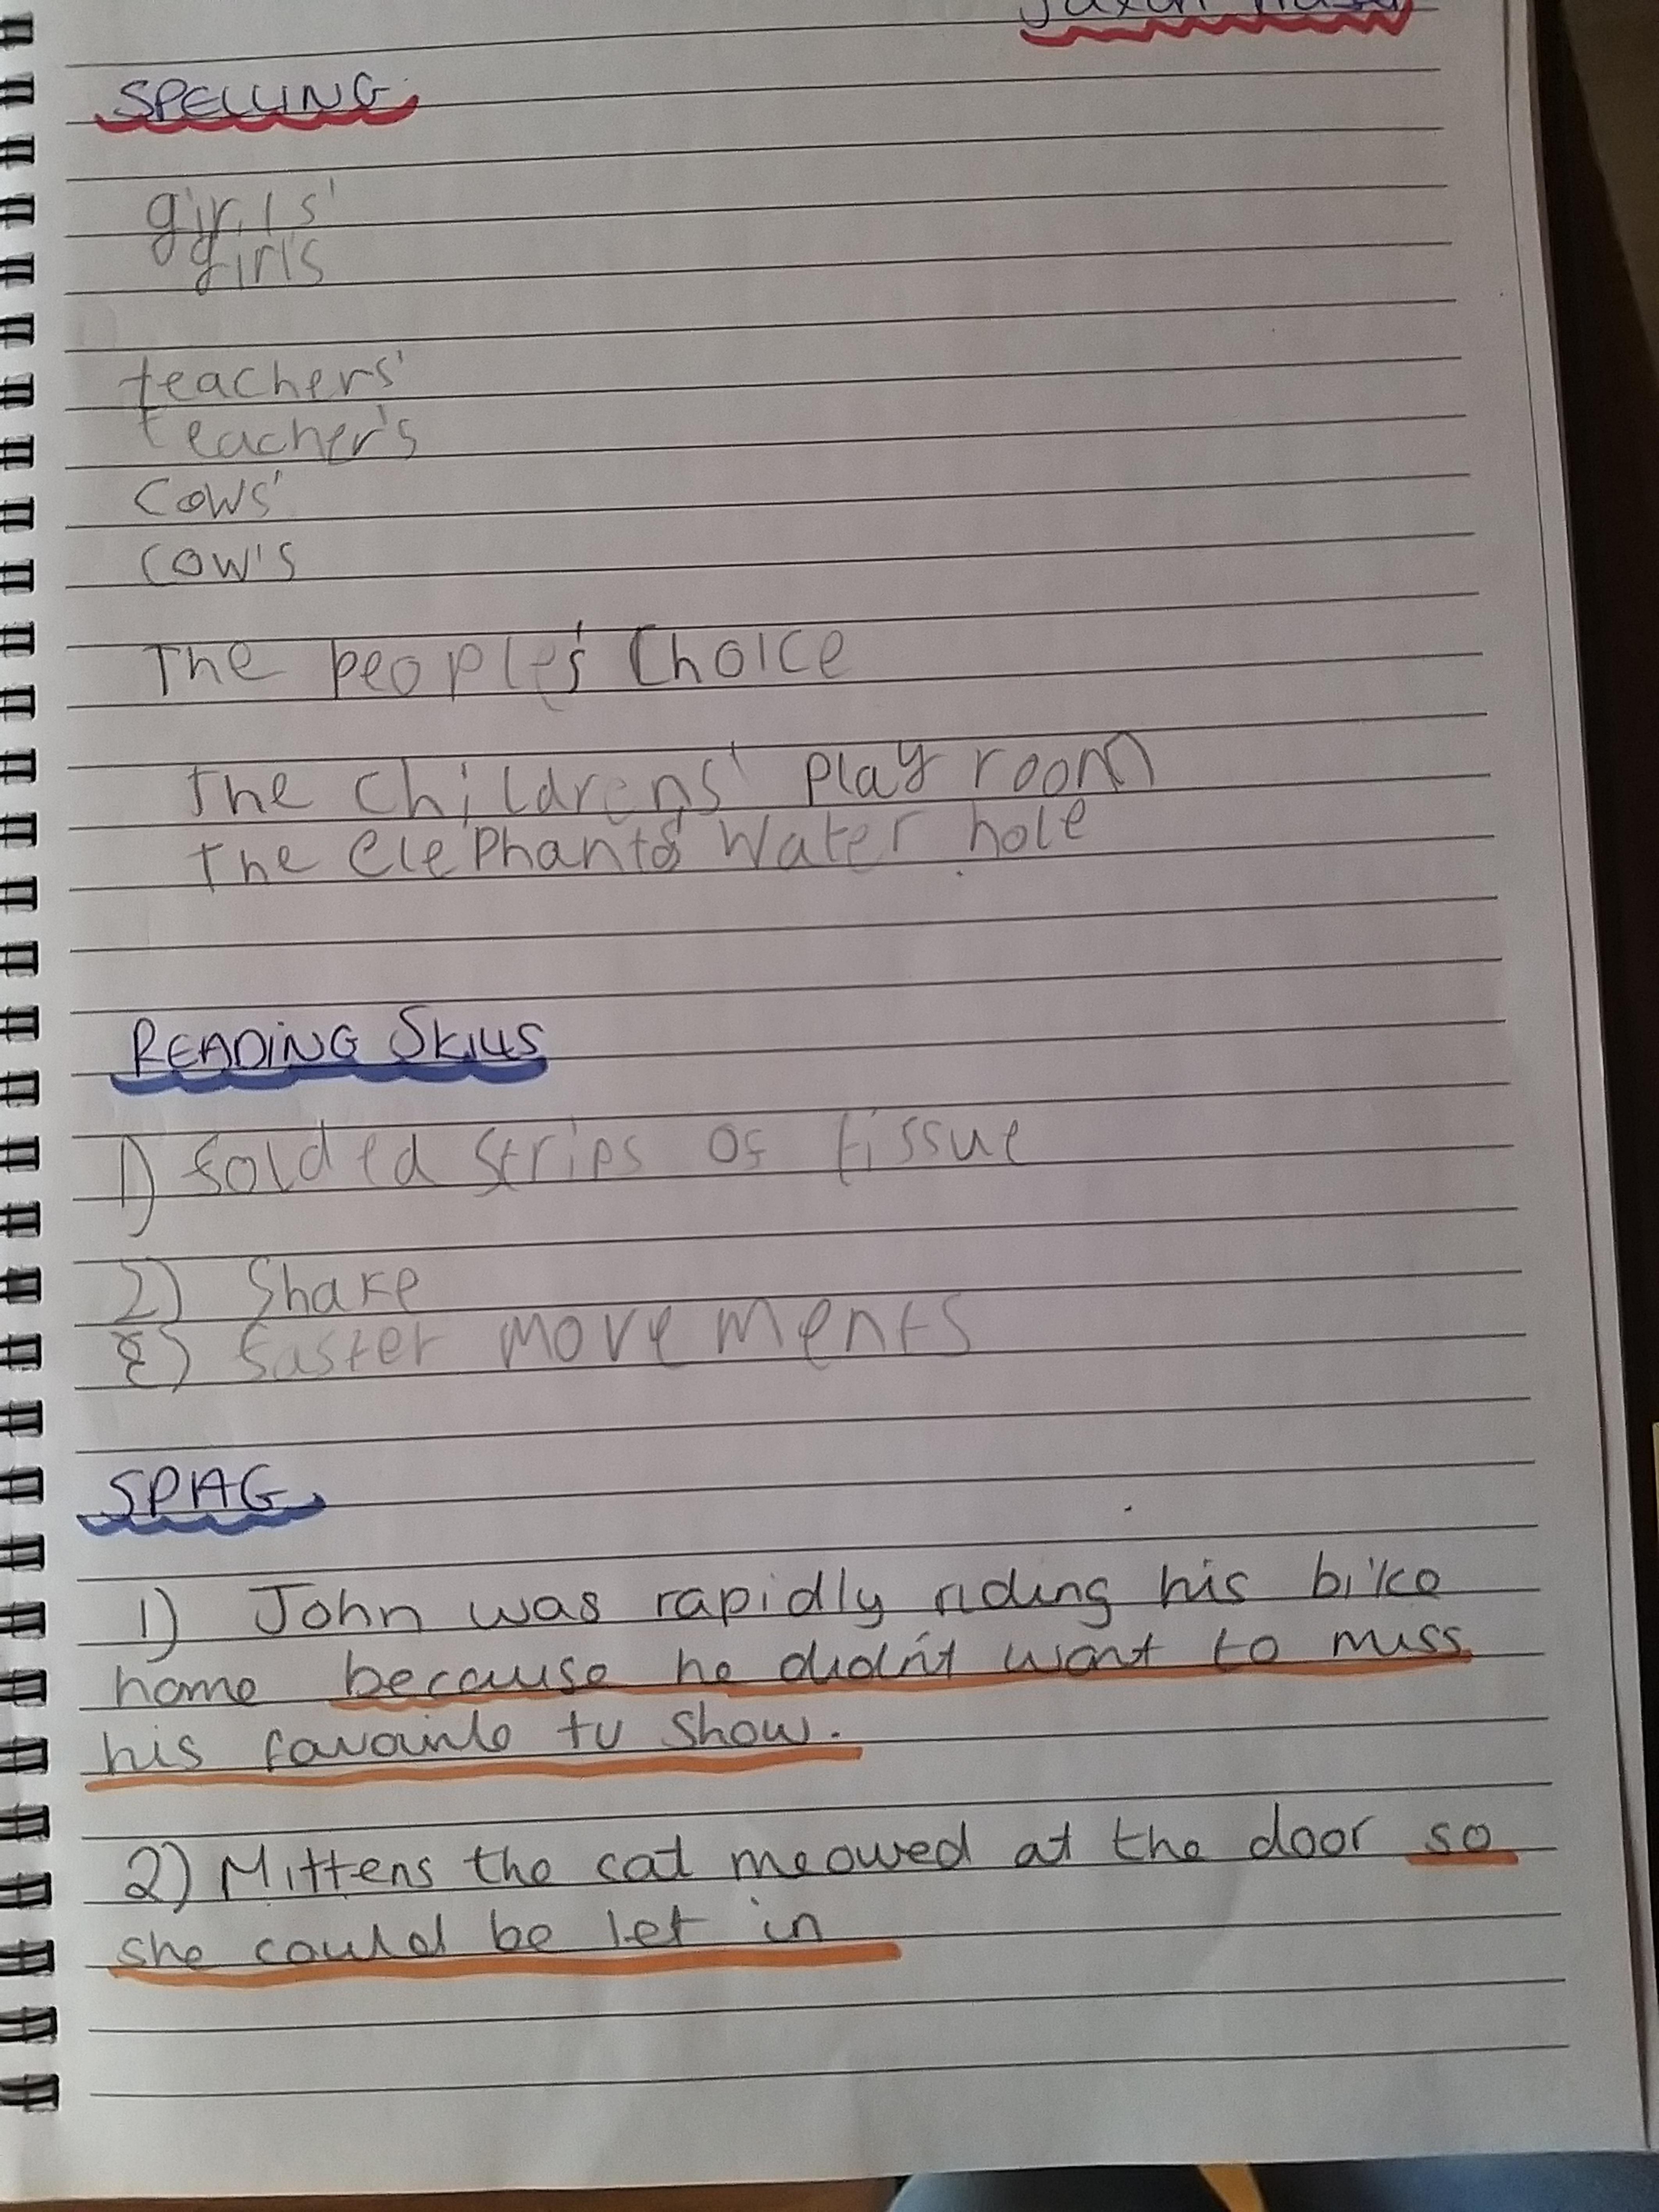 SPELLING
girls'
girl's
teachers'
teacher's
cows'
cow's
The people's Choice
The childrens' play room
The elephants' Water hole
READING SKILLS
1) folded strips of tissue
2) Shake
3) faster movements
SPAG
1) John was rapidly riding his bike
home because he didn't want to miss
his favourite tv show.
2) Mittens the cat meowed at the door so
she could be let in